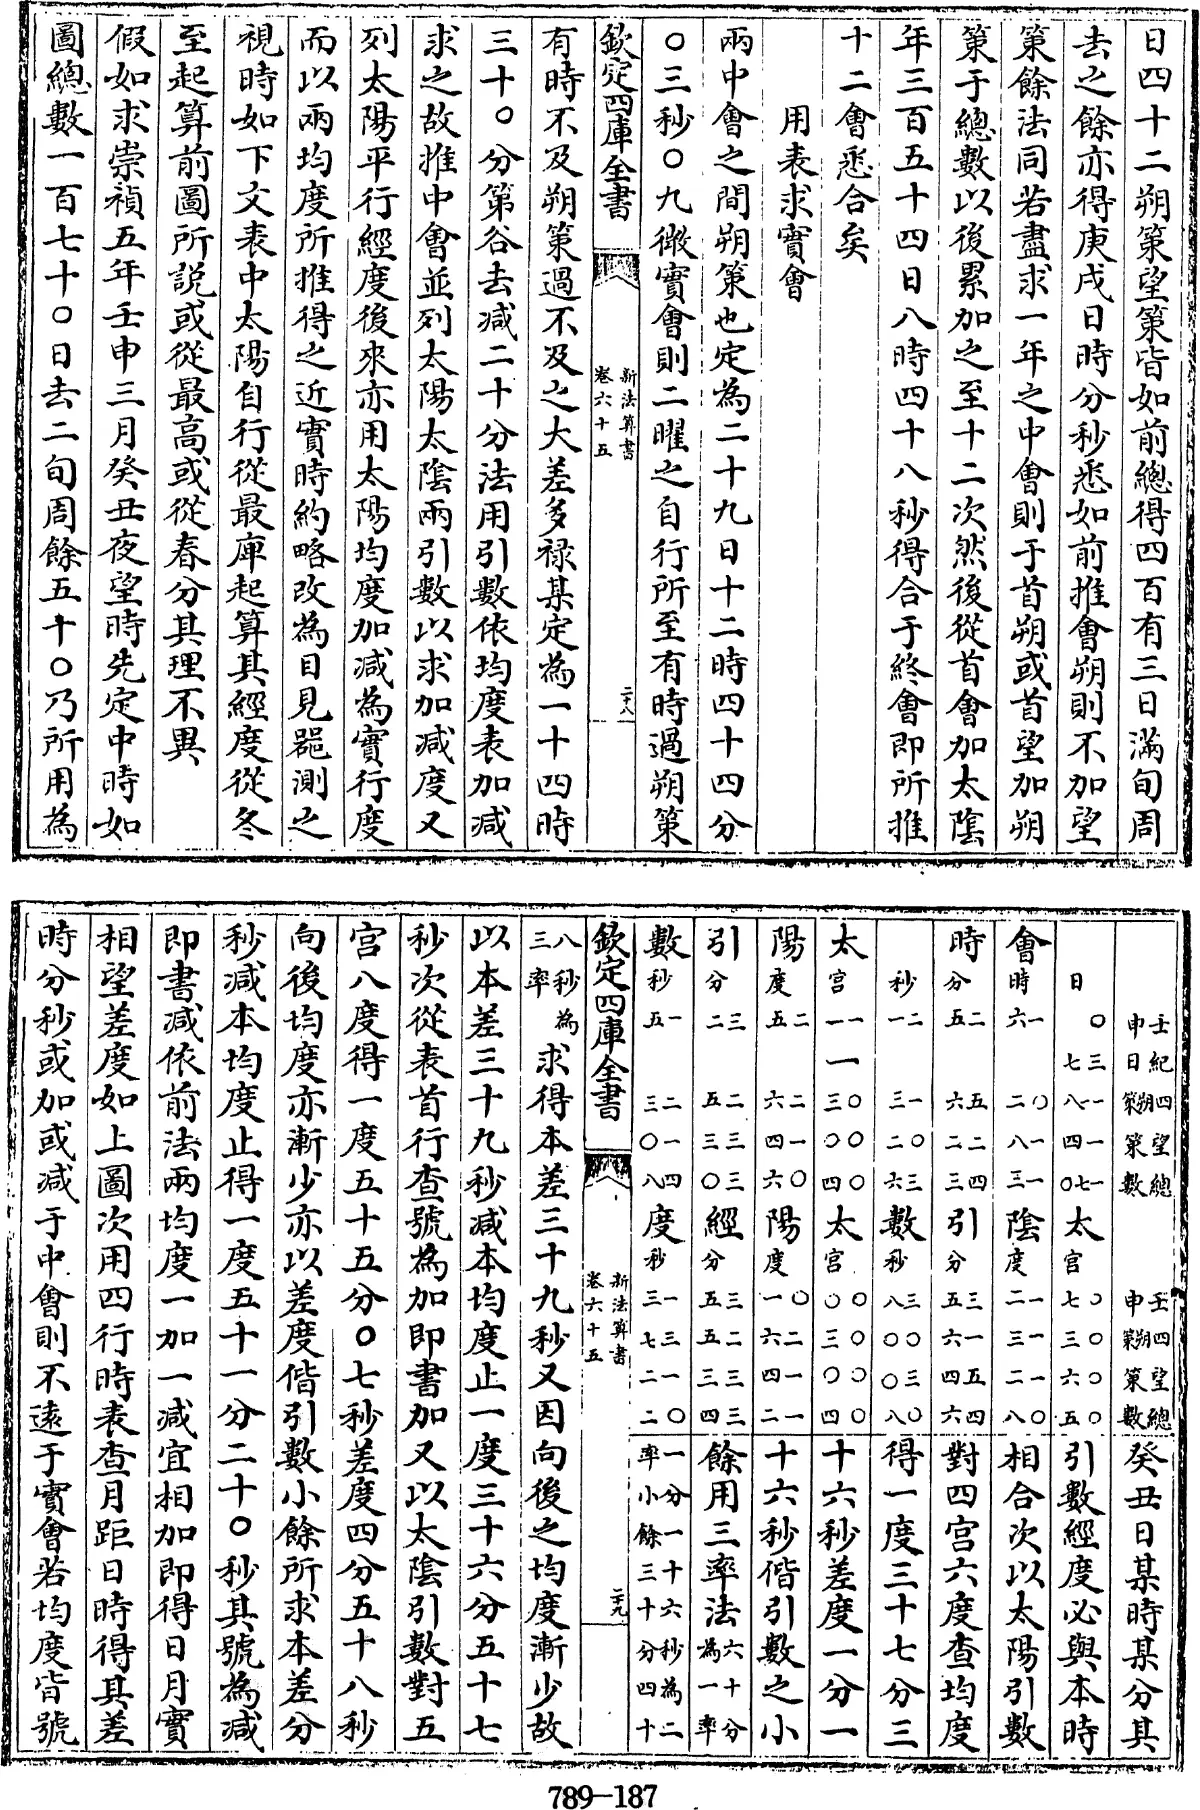 日四十二朔策望策皆如前總得四百有三日滿旬周
去之餘亦得庚戌日時分秒悉如前推會朔則不加望
策餘法同若盡求一年之中會則于首朔或首望加朔
策于總數以後累加之至十二次然後從首會加太陰
年三百五十四日八時四十八秒得合于終會即所推
十二會悉合矣
用表求實會
兩中會之間朔策也定為二十九日十二時四十四分
〇三秒〇九微實會則二曜之自行所至有時過朔策
欽定四庫全書
新法算書
卷六十五
二十八
有時不及朔策過不及之大差多禄某定為一十四時
三十〇分第谷去减二十分法用引數依均度表加减
求之故推中會並列太陽太陰兩引數以求加减度又
列太陽平行經度後來亦用太陽均度加减為實行度
而以兩均度所推得之近實時約略改為目見器測之
視時如下文表中太陽自行從最庳起算其經度從冬
至起算前圖所説或從最高或從春分其理不異
假如求崇禎五年壬申三月癸丑夜望時先定中時如
圖總數一百七十〇日去二旬周餘五十〇乃所用為
壬申紀日 四朔策 望策 總數 壬申 四朔策 望策 總數 癸丑日某時某分其
日 三七〇 一一八 一四 一七〇 太 宮 〇七 〇三 〇六 〇五 引數經度必與本時
會 時 一六 〇二 一八 一三 陰 度 一二 一三 一二 〇八 相合次以太陽引數
時 分 二五 五六 二二 四三 引 分 三五 一六 五四 四六 對四宫六度查均度
秒 二一 一三 〇二 三六 數 秒 三八 〇〇 三〇 〇八 得一度三十七分三
太 宮 一一一 〇三 〇〇 〇四 太 宮 〇〇 〇三 〇〇 〇四 十六秒差度一分一
陽 度 二五 二六 一四 〇六 陽 度 〇一 二六 一四 一二 十六秒偕引數之小
引 分 三二 二五 三三 三〇 經 分 三五 二五 三三 三四 餘用三率法六十分為一率
數 秒 一五 二三 一〇 四八 度 秒 一三 三七 一二 〇二 一分一十六秒為二率小餘三十分四十
八秒為三率
欽定四庫全書
新法算書
卷六十五
二十九
求得本差三十九秒又因向後之均度漸少故
以本差三十九秒减本均度止一度三十六分五十七
秒次從表首行查號為加即書加又以太陰引數對五
宫八度得一度五十五分〇七秒差度四分五十八秒
向後均度亦漸少亦以差度偕引數小餘所求本差分
秒减本均度止得一度五十一分二十〇秒其號為减
即書减依前法兩均度一加一减宜相加即得日月實
相望差度如上圖次用四行時表查月距日時得其差
時分秒或加或减于中會則不遠于實會若均度皆號
789-187